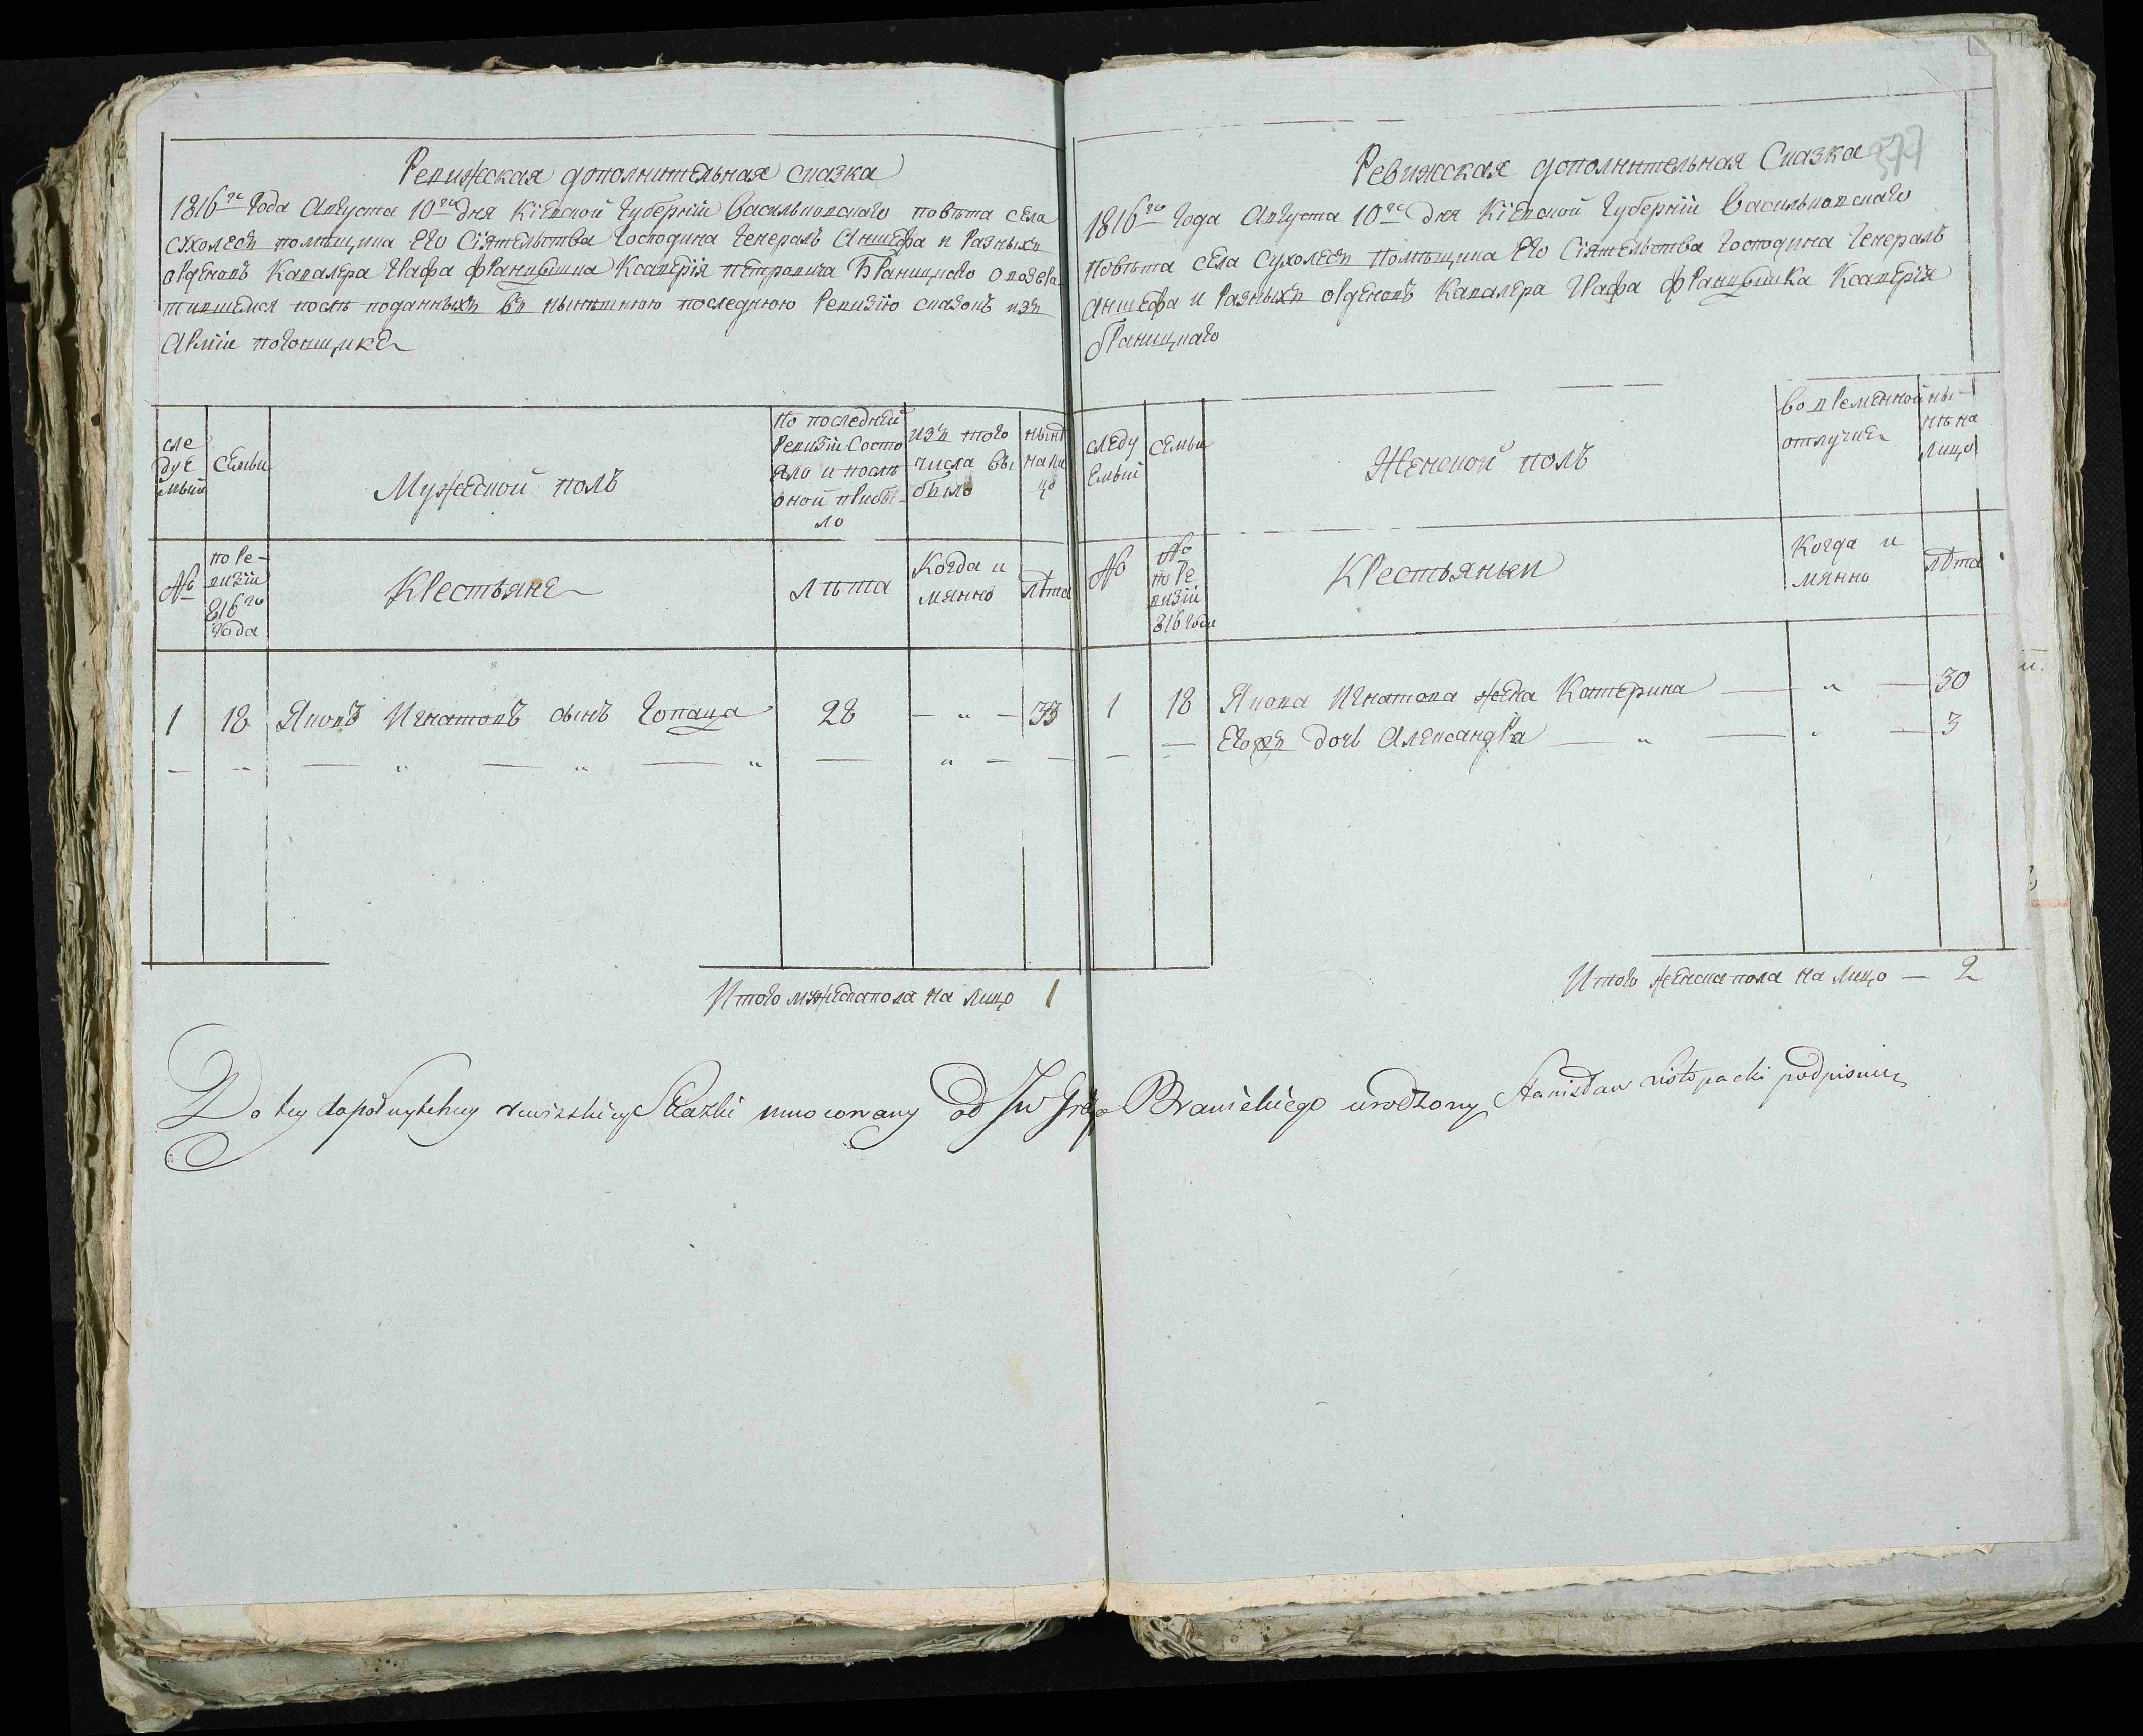 Ревижская дополнительная сказка
1816го Года Августа 10го дня Кіевской Губерніи Васильковскаго повѣта села
Сухолесъ помѣщика Его Сіятельства Господина Генералъ Аншефа и Разныхъ
орденовъ Кавалера Графа Францышка Ксаверія Петровича Браницкаго о возвра
тившемся послѣ поданныхъ въ нынѣшнюю последнюю Ревизію сказокъ изъ
Арміи погонщике
сле
дуе
мый
семьи
Мужеской полъ
По последней
Ревизіи Состо
яло и послѣ
оной прибы-
ло
изъ того
числа вы
было
нынѣ
на ли
цо
№
по Ре-
визіи
816го
Года
Крестьяне
Лѣта
Когда и
мянно
лѣта
1 18 Яковъ Игнатовъ сынъ Гопаца 28 — " — 33
Итого мужеска пола на лицо 1
Ревижская дополнительная Сказка
577
1816го Года Августа 10го Дня Кіевской Губерніи Васильковскаго
Повѣта села Сухолесъ Помѣщика Его Сіятельства Господина Генералъ
Аншефа и Разныхъ орденовъ Кавалера Графа Францышка Ксаверія
Браницкаго
следу
емый
семьи
Женской полъ
Во временной
отлучке
ны-
нѣ на
лицо
№
№
по Ре
визіи
816 Года
Крестьянки
Когда и
мянно
лѣта
1 18 Якова Игнатова жена Катерина — " — 30
Егожъ дочь Александра — " — " — 3
Итого женска пола на лицо — 2
Do tey dopołnytelney rewizskiey Skazki umocowany od JW Grafa Branickiego urodzony Stanisław podpisuię